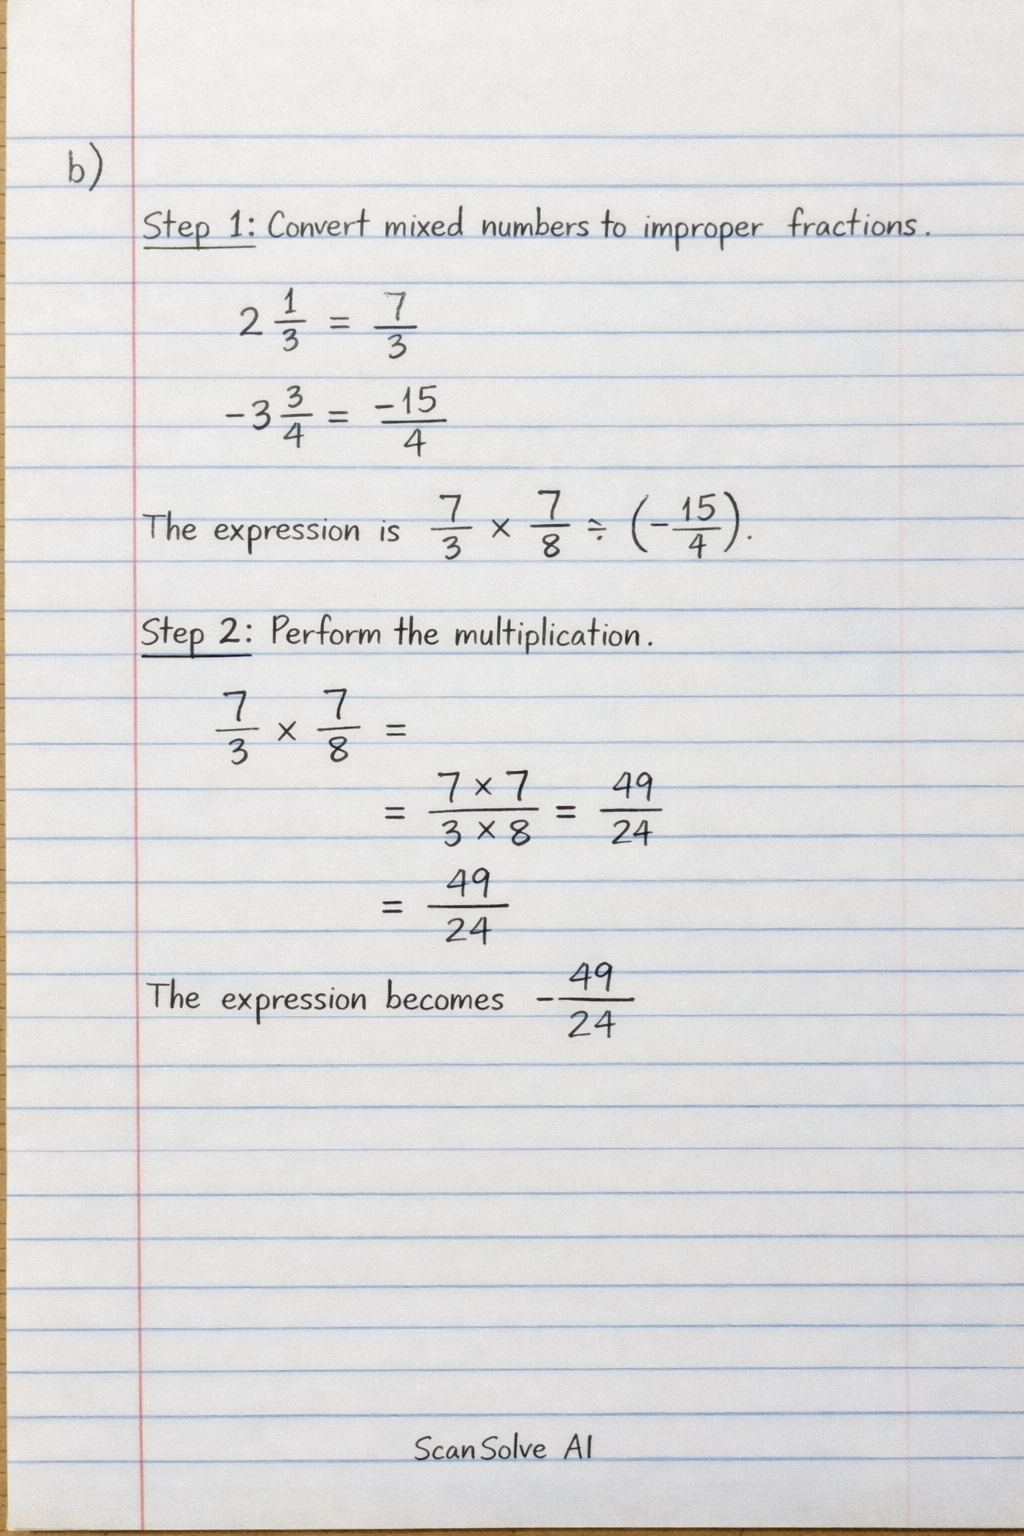 b)
Step 1: Convert mixed numbers to improper fractions.
2 1/3 = 7/3
-3 3/4 = -15/4
The expression is 7/3 × 7/8 ÷ (-15/4).
Step 2: Perform the multiplication.
7/3 × 7/8 =
= 7 × 7/3 × 8 = 49/24
= 49/24
The expression becomes -49/24
ScanSolve AI